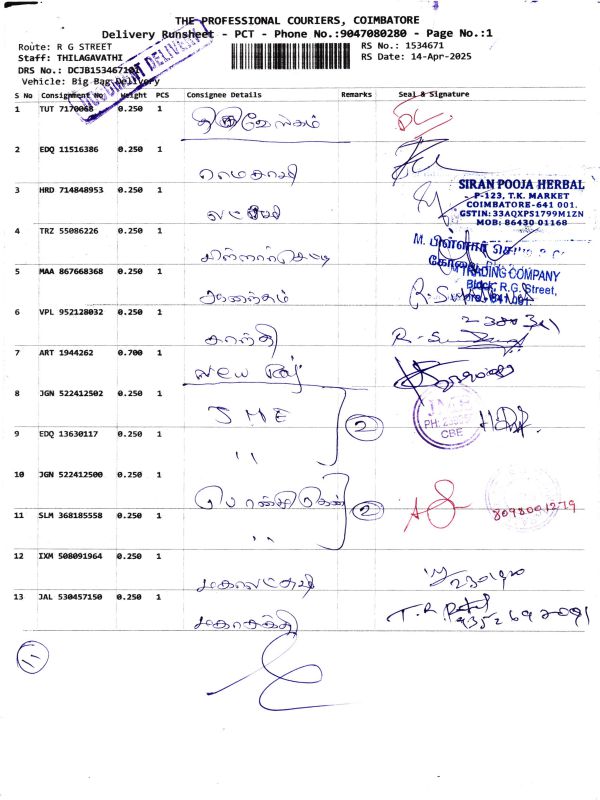 THE PROFESSIONAL COURIERS, COIMBATORE
Delivery Runsheet - PCT - Phone No.:9047080280 - Page No.:1
Route: R G STREET
RS No.: 1534671
Staff: THILAGAVATHI
RS Date: 14-Apr-2025
DRS No.: DCJB1534671
Vehicle: Big Bag Delivery
DELIVERY
S No Consignment No Weight PCS Consignee Details Remarks Seal & Signature
1 TUT 7170068 0.250 1
2 EDQ 11516386 0.250 1 காமாட்சி
3 HRD 714848953 0.250 1 லட்சுமி
SIRAN POOJA HERBAL
P-123, T.K. MARKET
COIMBATORE-641 001.
GSTIN: 33AQXPS1799M1ZN
MOB: 86430 01168
4 TRZ 55086226 0.250 1
M. பிள்ளையார் செட்டி
கோவை
5 MAA 867668368 0.250 1 ஆனந்தம்
TRADING COMPANY
Block, R.G. Street,
641 001.
6 VPL 952128032 0.250 1 காந்தி
238031
7 ART 1944262 0.700 1 New Raj
8 JGN 522412502 0.250 1 JME 2
JME
PH:
CBE
9 EDQ 13630117 0.250 1 "
10 JGN 522412500 0.250 1 2
8098001279
11 SLM 368185558 0.250 1 "
12 IXM 508091964 0.250 1 மகாலட்சுமி
2301920
13 JAL 530457150 0.250 1 மகாசக்தி
T.R. Patel
9352692091
11